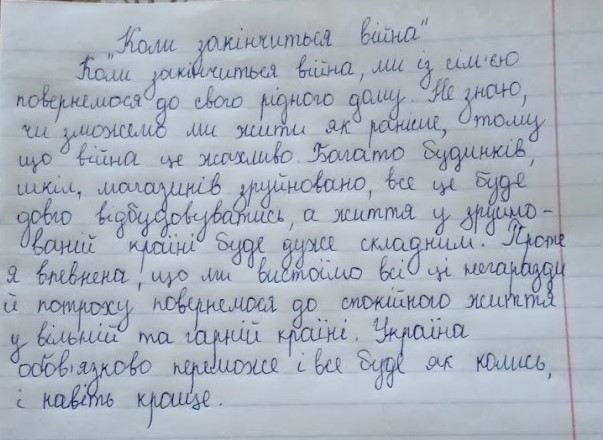 "Коли закінчиться війна"
Коли закінчиться війна, ми із сім'єю
повернемося до свого рідного дому. Не знаю,
чи зможемо ми жити як раніше, тому
що війна це жахливо. Багато будинків,
шкіл, магазинів зруйновано, все це буде
довго відбудовуватись, а життя у зруйно-
ваній країні буде дуже складним. Проте
я впевнена, що ми вистоїмо всі ці негаразди
й потроху повернемося до спокійного життя
у вільній та гарній країні. Україна
обов'язково переможе і все буде як колись,
і навіть краще.